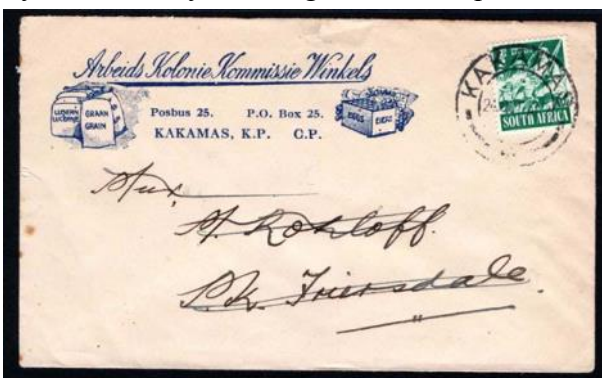 Arbeids Kolonie Kommissie Winkels
LUSERN
LUCERNE
GRAAN
GRAIN
Posbus 25. P.O. Box 25.
KAKAMAS, K.P. C.P.
EIERS EGGS
KAKAMAS
SOUTH AFRICA
Mnr.
A. Rohloff.
P.K. Friersdale.